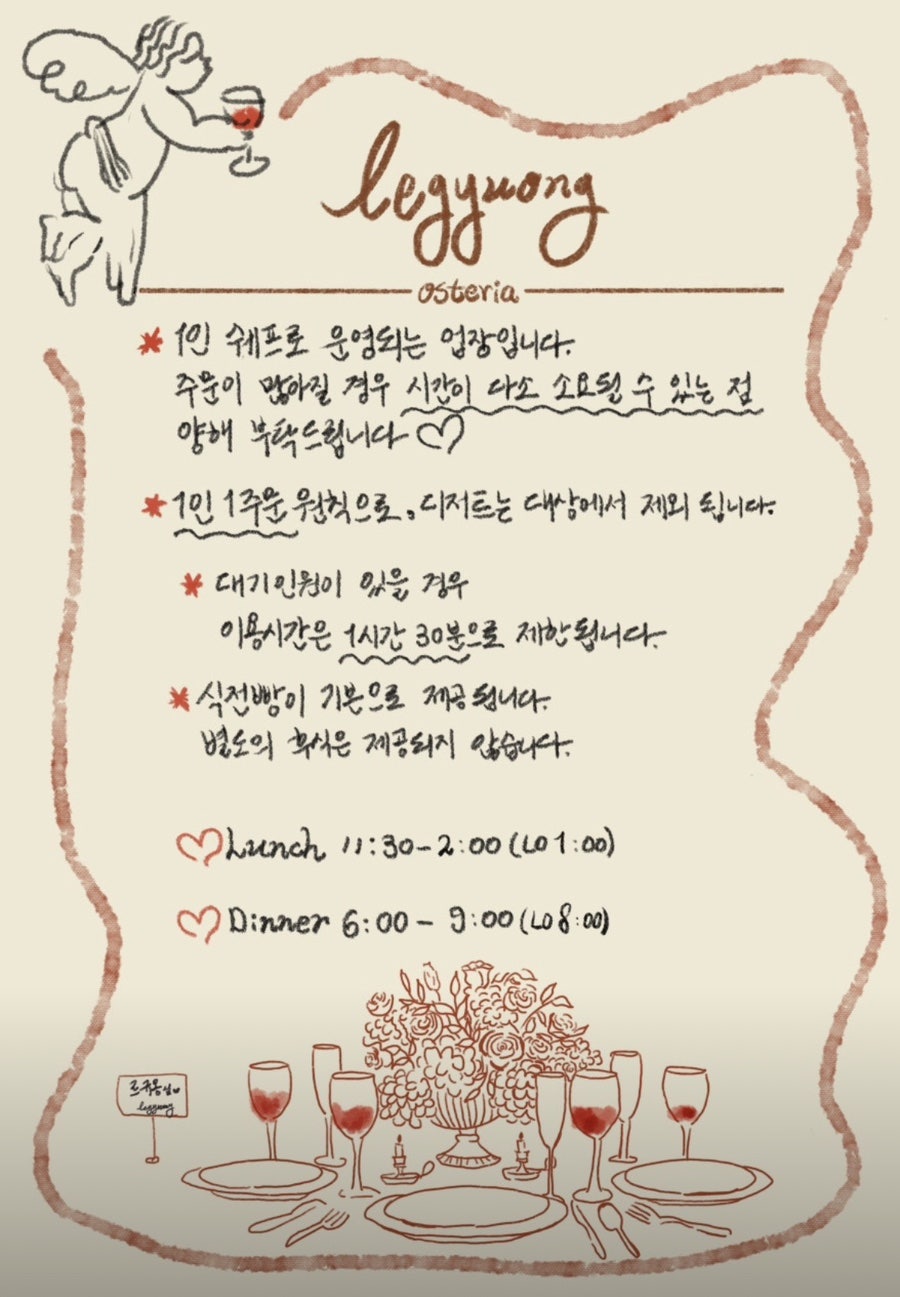 legyuong
osteria
* 1인 쉐프로 운영되는 업장입니다.
주문이 많아질 경우 시간이 다소 소요될 수 있는 점
양해 부탁드립니다♡
* 1인 1주문 원칙으로, 디저트는 대상에서 제외 됩니다.
* 대기인원이 있을 경우
이용시간은 1시간 30분으로 제한됩니다.
* 식전빵이 기본으로 제공됩니다.
별도의 후식은 제공되지 않습니다.
♡Lunch 11:30-2:00 (LO 1:00)
♡Dinner 6:00 - 9:00 (LO 8:00)
르뀨옹
legyuong